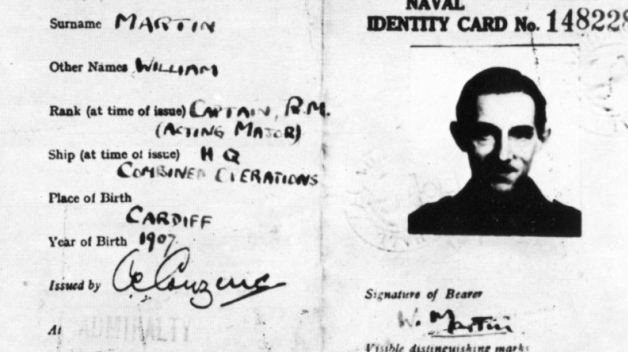 Surname MARTIN
Other Names WILLIAM
Rank (at time of issue) CAPTAIN, R.M.
(ACTING MAJOR)
Ship (at time of issue) H Q
COMBINED OPERATIONS
Place of Birth
CARDIFF
Year of Birth 1907
Issued by
At
ADMIRALTY
NAVAL
IDENTITY CARD No. 148228
Signature of Bearer
W. Martin
Visible distinguishing marks